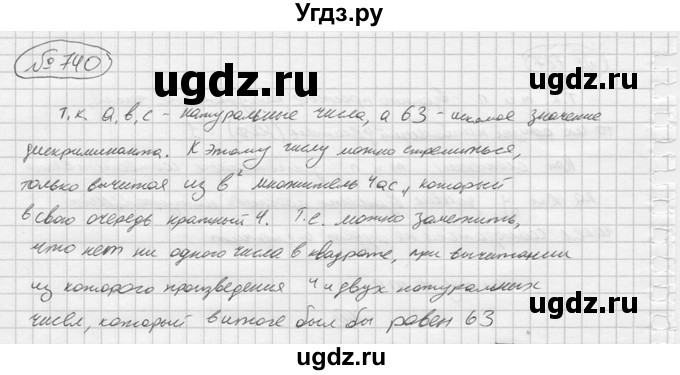 Угдз.ру
№740
ugdz.ru ugdz.ru
т.к. a, b, c - натуральные числа, а 63 - искомое значение
дискриминанта. К этому числу можно стремиться,
только вычитая из b² множитель 4ac, который
в свою очередь кратный 4. Т.е. можно заметить,
что нет ни одного числа в квадрате, при вычитании
ugdz.ru ugdz.ru
из которого произведения 4 и двух натуральных
чисел, который в итоге был бы равен 63
ugdz.ru